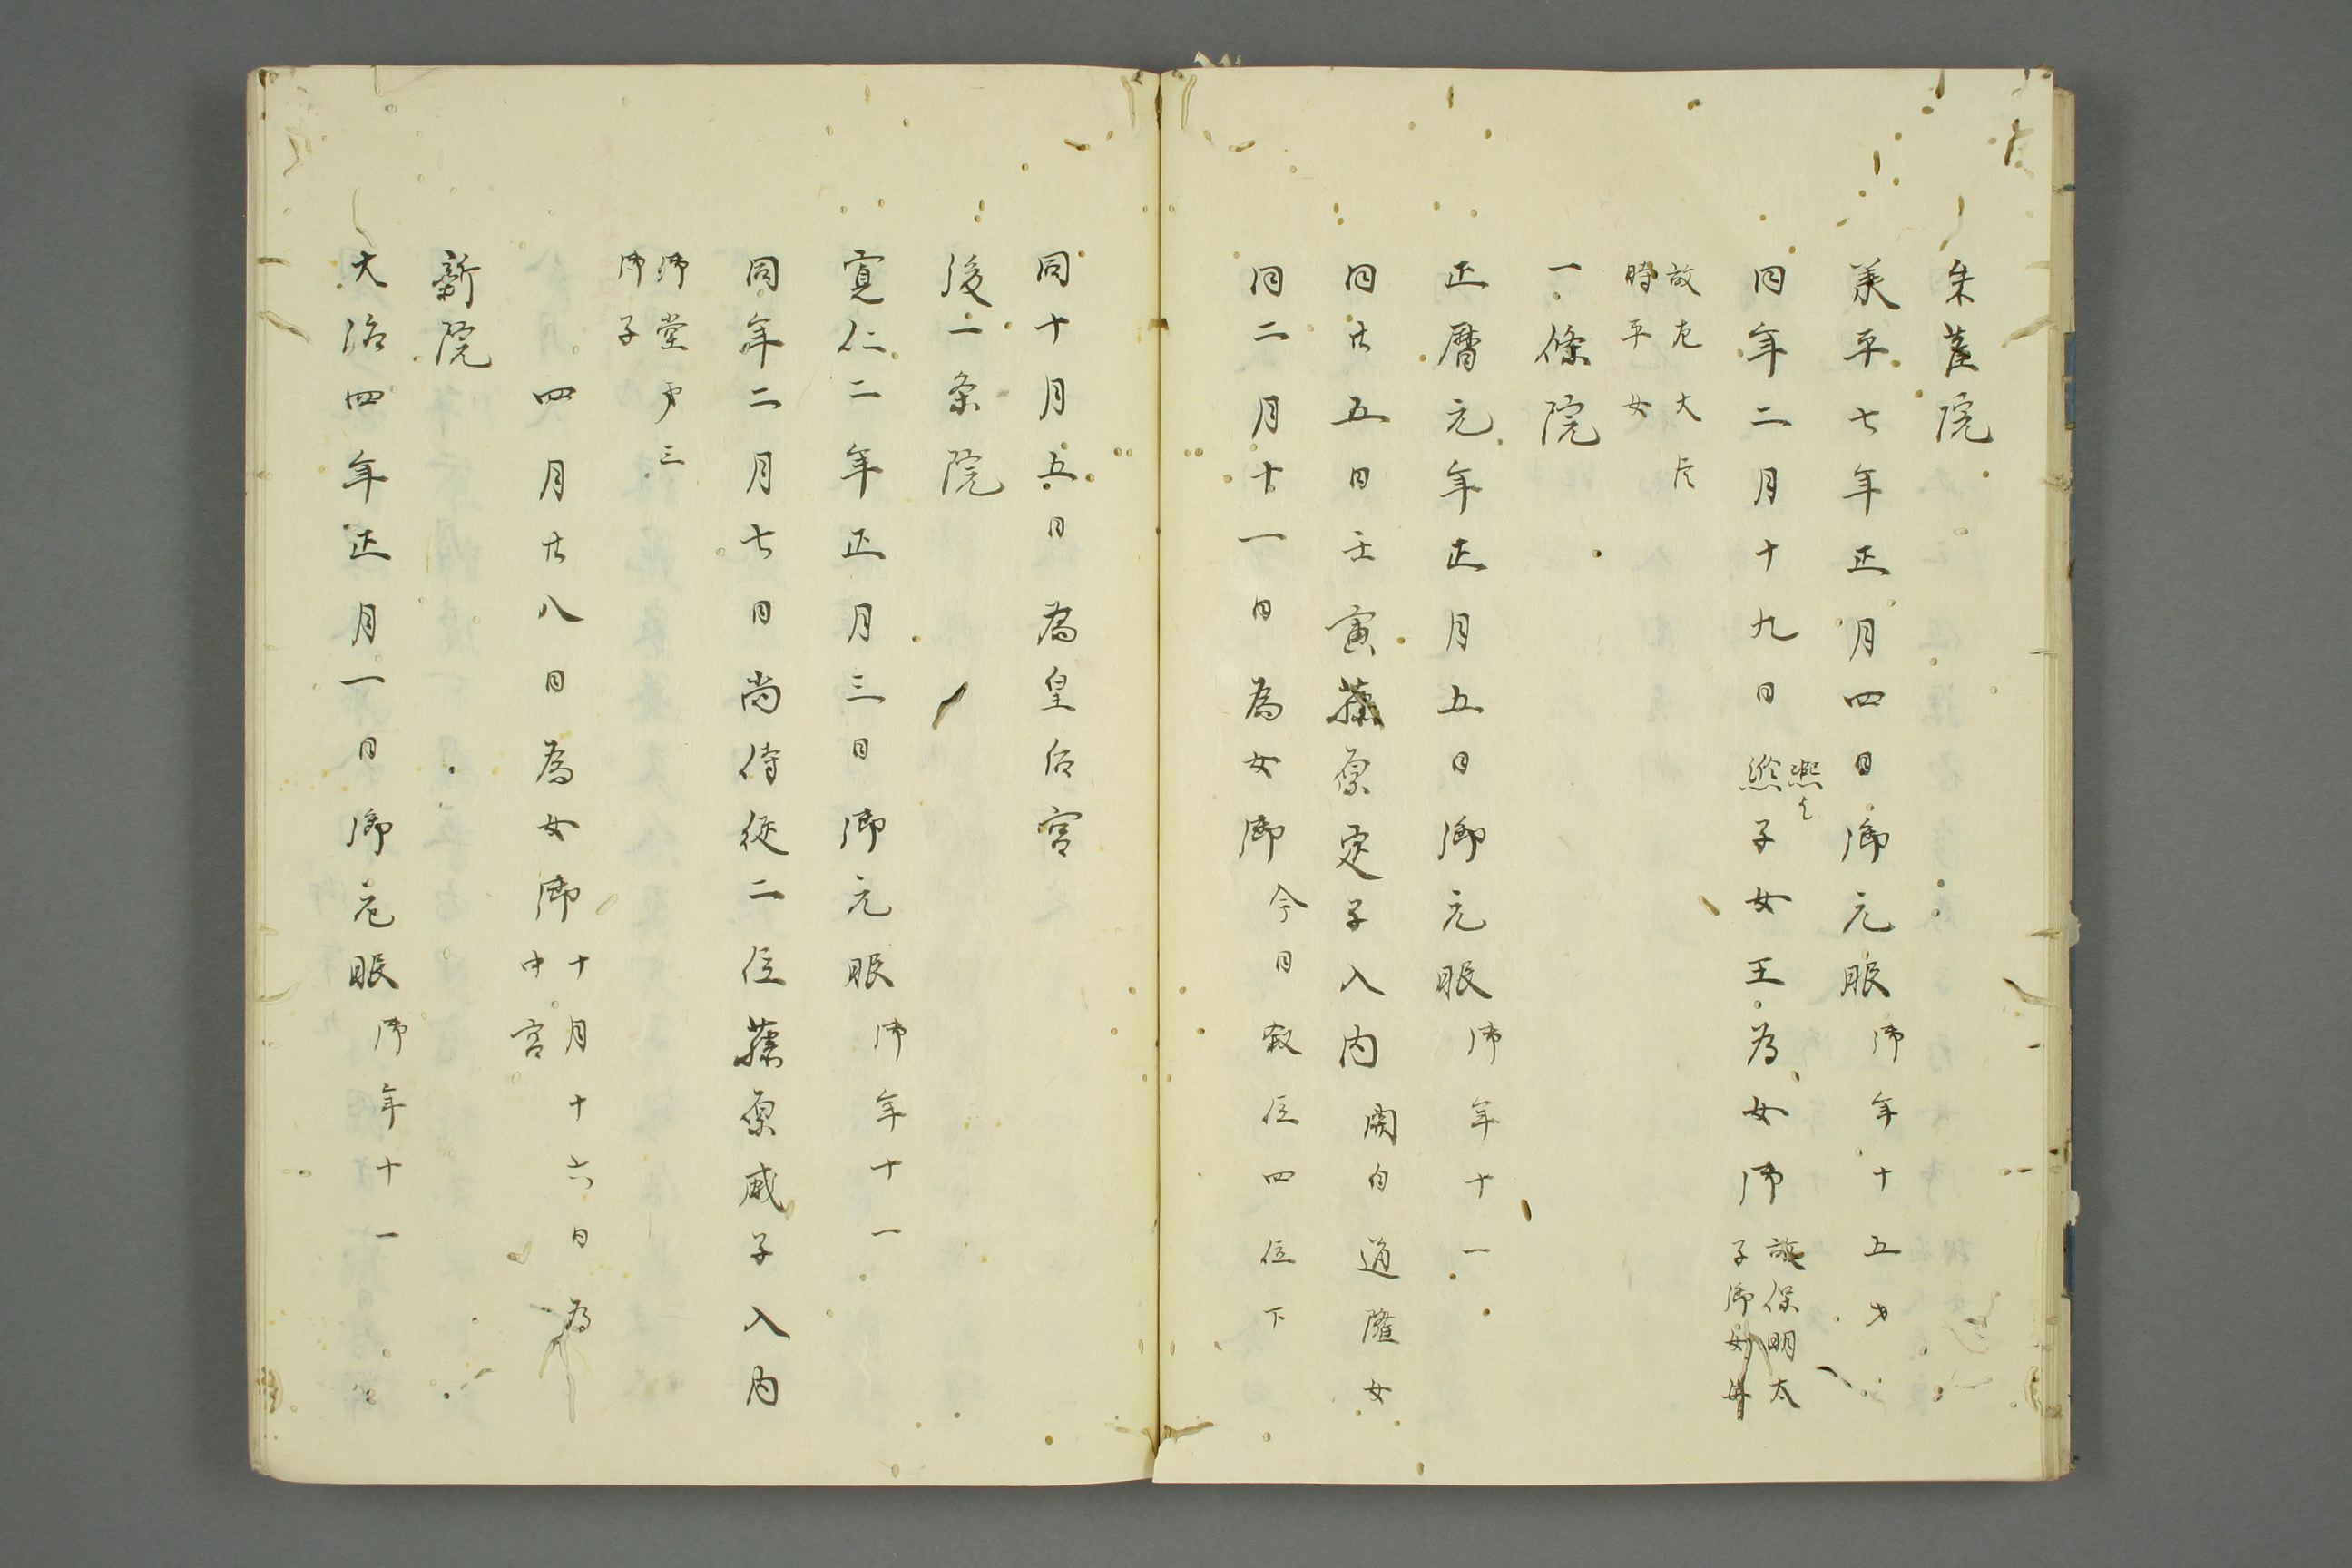 朱雀院
承平七年正月四日御元服 御年十五才
同年二月十九日凞子女王為女御 故保明太
子御女母
熈乎
故左大臣
時平女
一條院
正暦元年正月五日御元服 御年十一
同廿五日壬寅藤原定子入内 関白道隆女
同二月十一日為女御 今日叙位四位下
同十月五日為皇后宮
後一条院
寛仁二年正月三日御元服 御年十一
同年二月七日尚侍従二位藤原威子入内
御堂第三
御子
四月廿八日為女御 十月十六日為
中宮
新院
大治四年正月一日御元服 御年十一